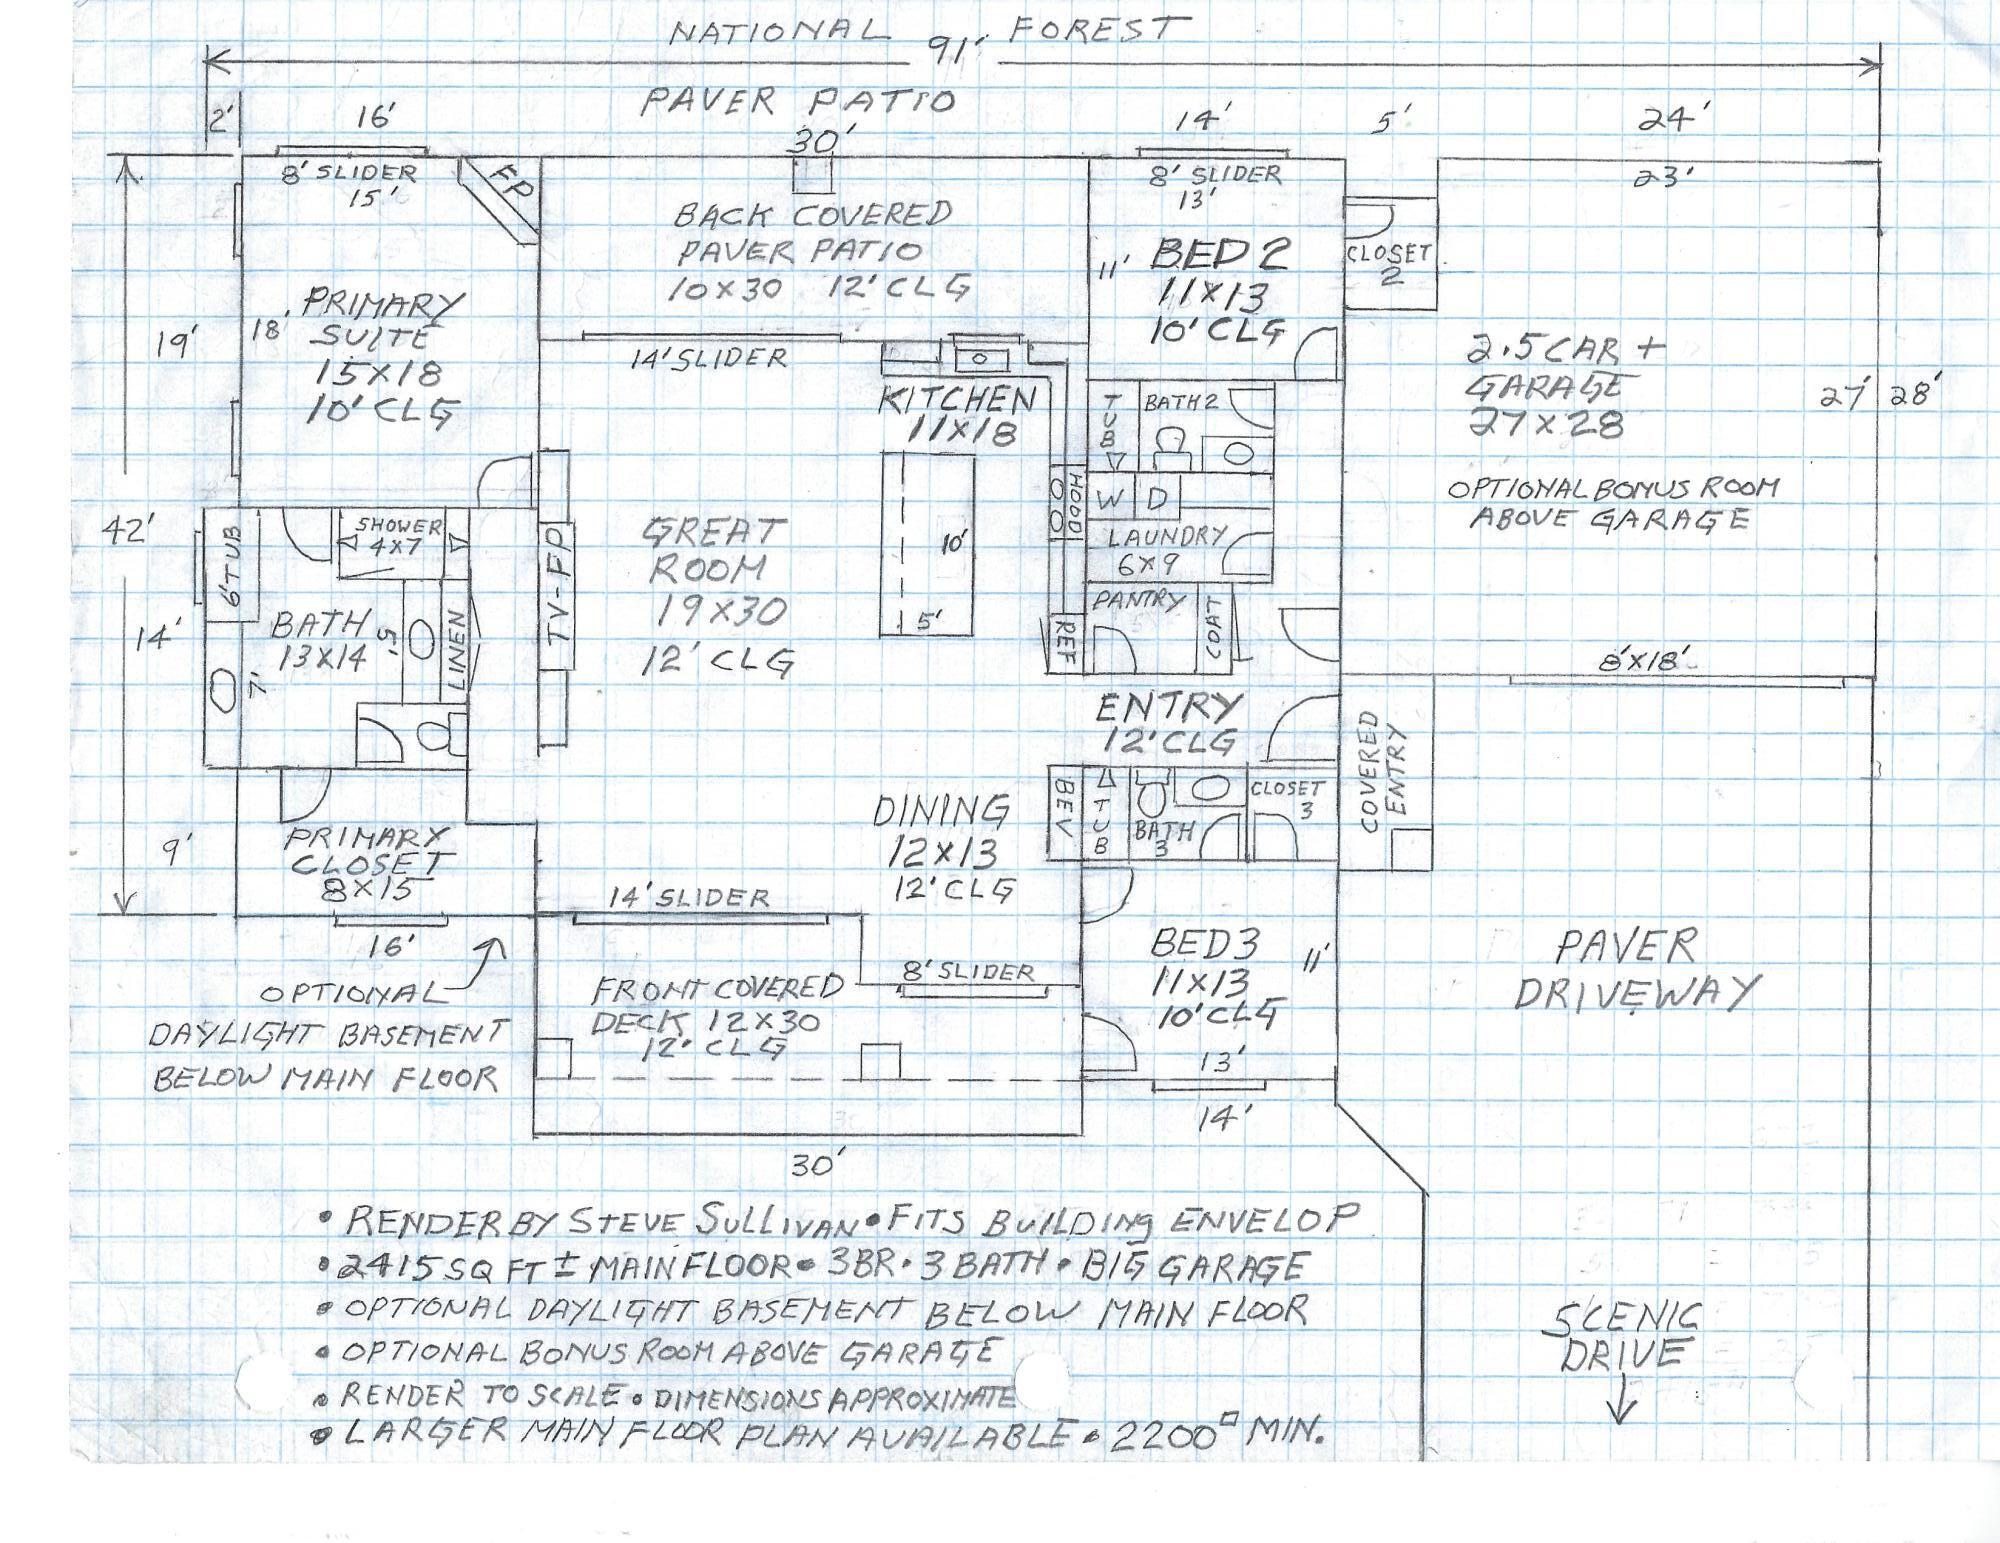 NATIONAL FOREST
91'
PAVER PATIO
2'
16'
30'
14'
5'
24'
8' SLIDER
15'
FP
8' SLIDER
13'
23'
BACK COVERED
PAVER PATIO
10X30 12' CLG
11'
BED 2
11X13
10' CLG
CLOSET
2
PRIMARY
SUITE
15X18
10' CLG
19'
18'
14' SLIDER
KITCHEN
11X18
2.5 CAR +
GARAGE
27X28
27'
28'
OPTIONAL BONUS ROOM
ABOVE GARAGE
TUB
BATH 2
HOOD
W D
LAUNDRY
6X9
42'
6' TUB
SHOWER
4X7
GREAT
ROOM
19X30
12' CLG
TV-FP
10'
5'
PANTRY
COAT
REF
14'
BATH
13X14
5'
LINEN
7'
8'X18'
ENTRY
12' CLG
COVERED
ENTRY
DINING
12X13
12' CLG
BEV
TUB
BATH
3
CLOSET
3
9'
PRIMARY
CLOSET
8X15
14' SLIDER
16'
8' SLIDER
BED 3
11X13
10' CLG
11'
13'
14'
PAVER
DRIVEWAY
FRONT COVERED
DECK 12X30
12' CLG
OPTIONAL
DAYLIGHT BASEMENT
BELOW MAIN FLOOR
30'
• RENDER BY STEVE SULLIVAN • FITS BUILDING ENVELOP
• 2415 SQ FT ± MAIN FLOOR • 3BR • 3 BATH • BIG GARAGE
• OPTIONAL DAYLIGHT BASEMENT BELOW MAIN FLOOR
• OPTIONAL BONUS ROOM ABOVE GARAGE
• RENDER TO SCALE • DIMENSIONS APPROXIMATE
• LARGER MAIN FLOOR PLAN AVAILABLE • 2200□ MIN.
SCENIC
DRIVE